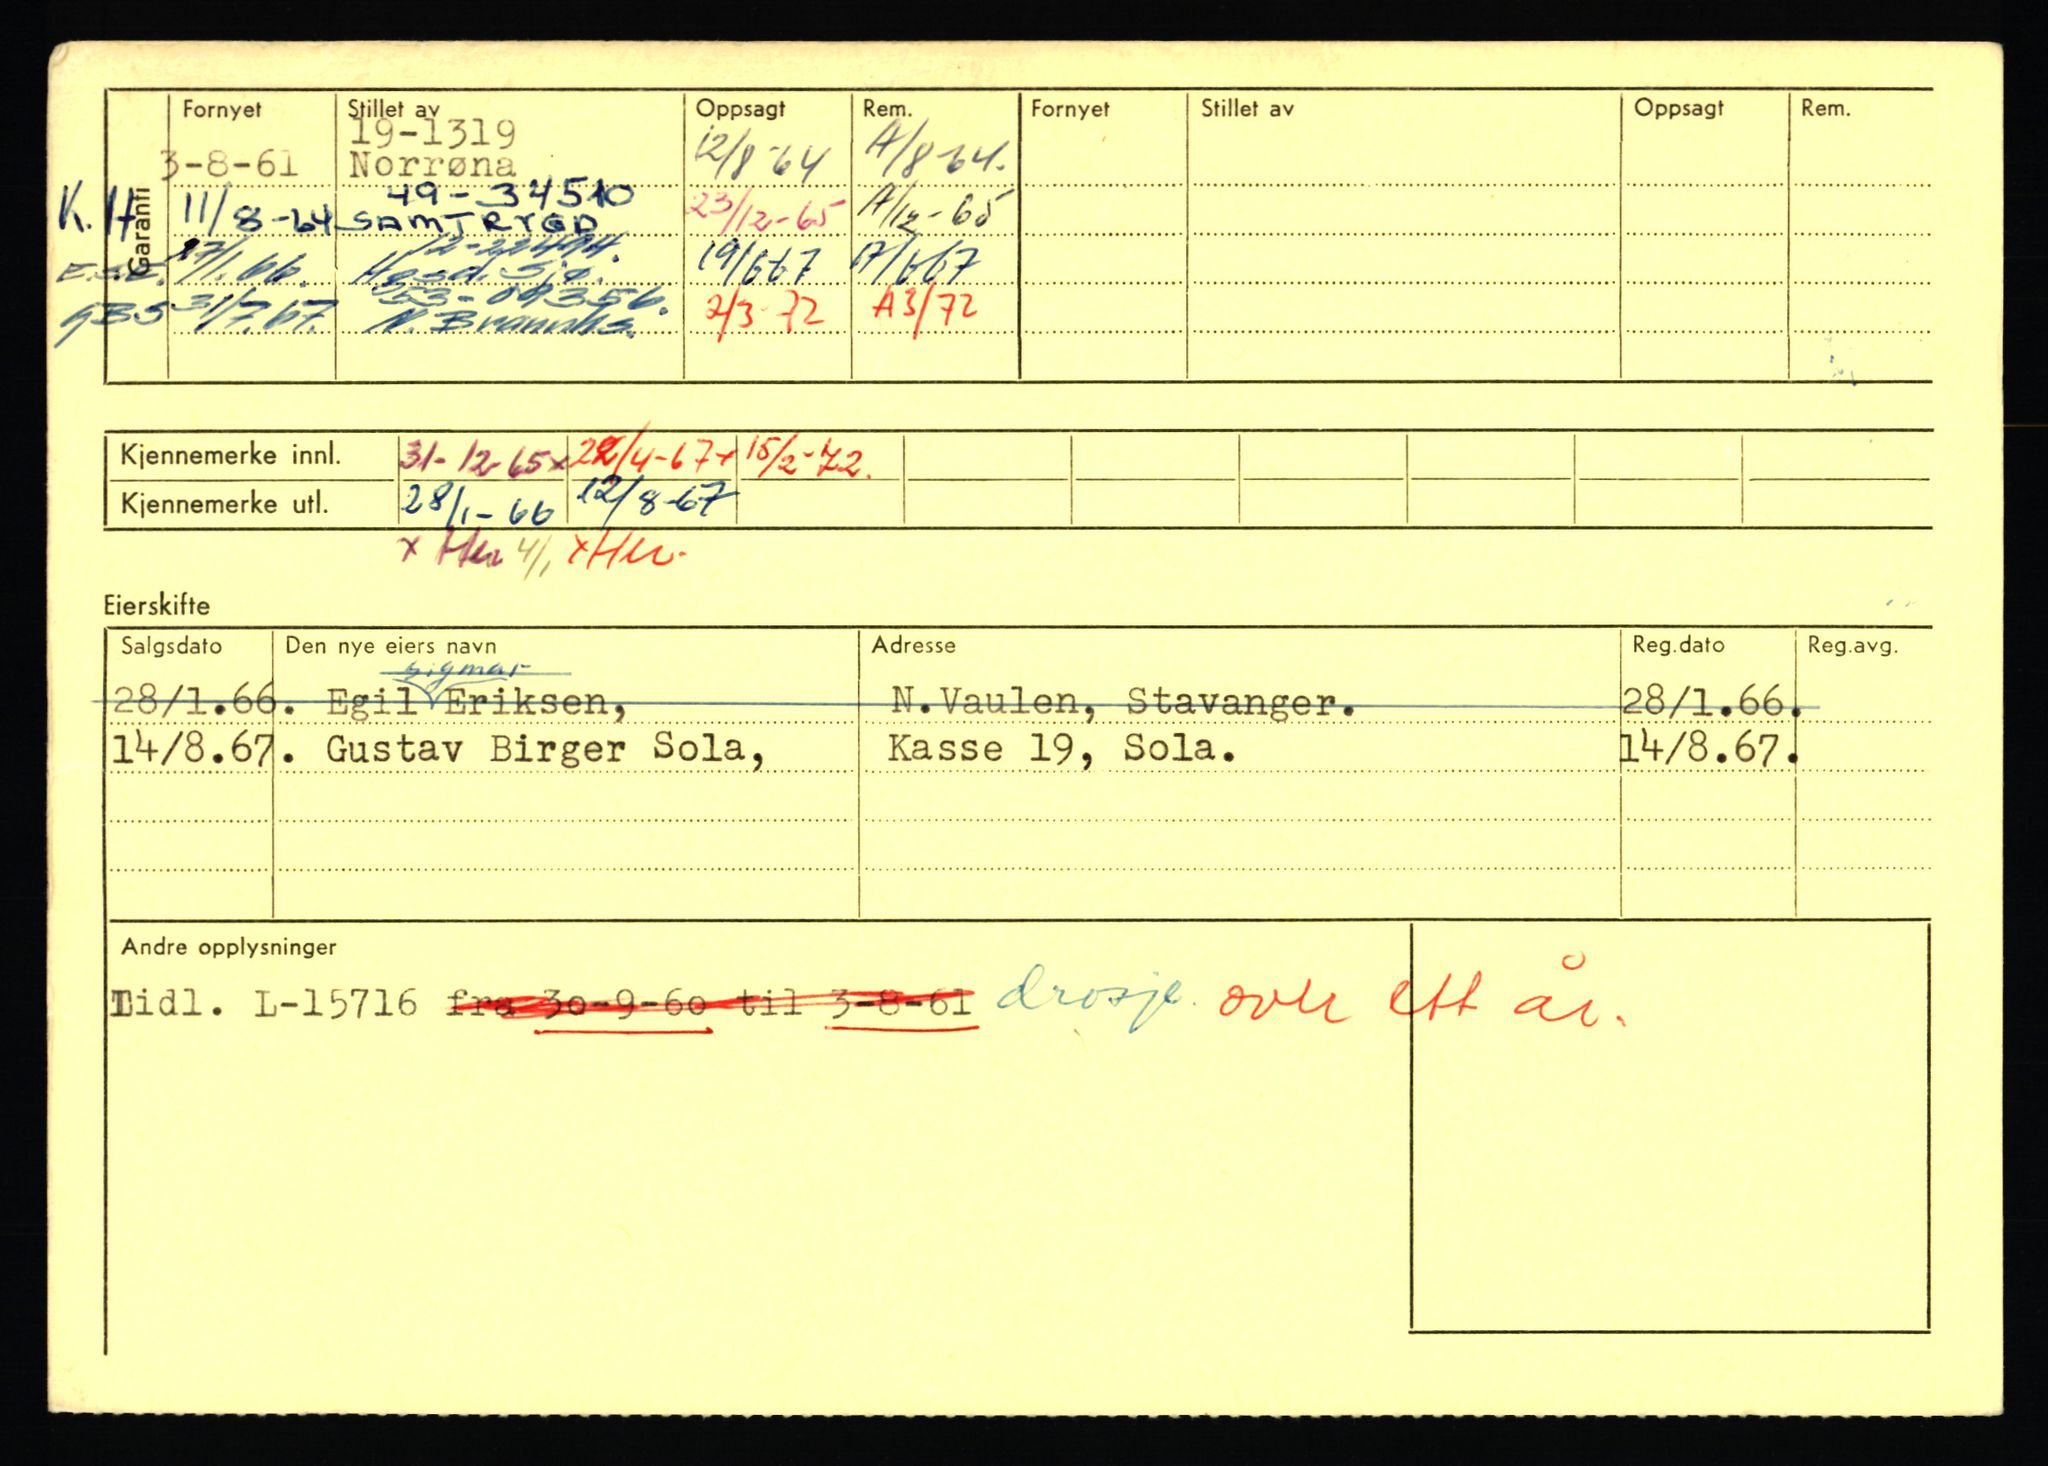 Garanti
Fornyet Stillet av Oppsagt Rem. Fornyet Stillet av Oppsagt Rem.
19-1319
3-8-61 Norrøna 12/8-64 A/8-64.
49-34510
K.H 11/8-64 SAMTRYGD 23/12-65 A/12-65
12-22494.
E.S.E. 27/1.66. Hasd. Sjø. 19/6 67 A/6 67
53-09356.
GBS 31/7.67. N. Brannks. 2/3-72 A3/72
Kjennemerke innl. 31-12-65x 22/4-67x 15/2-72.
Kjennemerke utl. 28/1-66 12/8-67
x Hkr 4/1 x Hkr.
Eierskifte
Salgsdato Den nye eiers navn Adresse Reg.dato Reg.avg.
Sigmar
28/1.66. Egil Eriksen, N.Vaulen, Stavanger. 28/1.66.
14/8.67. Gustav Birger Sola, Kasse 19, Sola. 14/8.67.
Andre opplysninger
Tidl. L-15716 fra 30-9-60 til 3-8-61 drosje. over ett år.